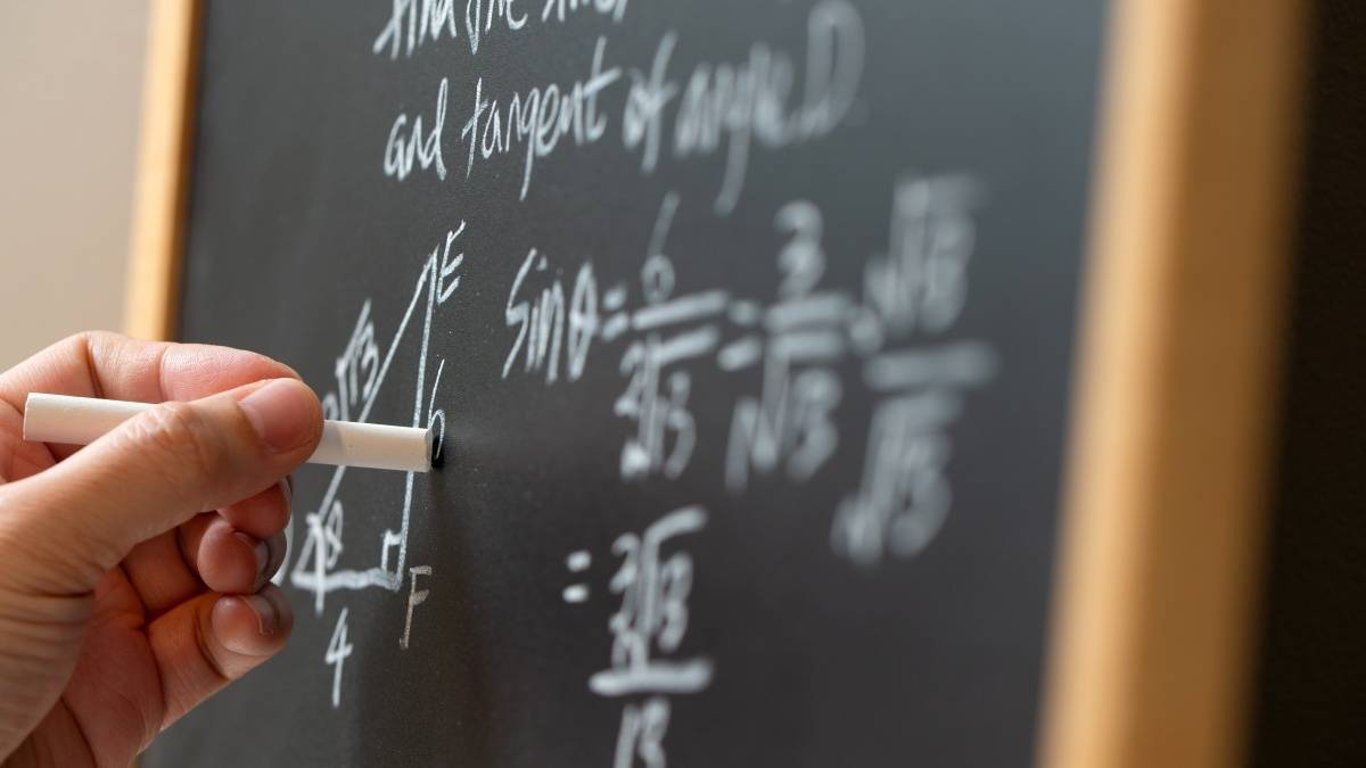 find the sine,
and tangent of angle D
E
2√13
6
θ
F
4
sin θ = 6/2√13 = 3/√13 · √13/√13
= 3√13/13